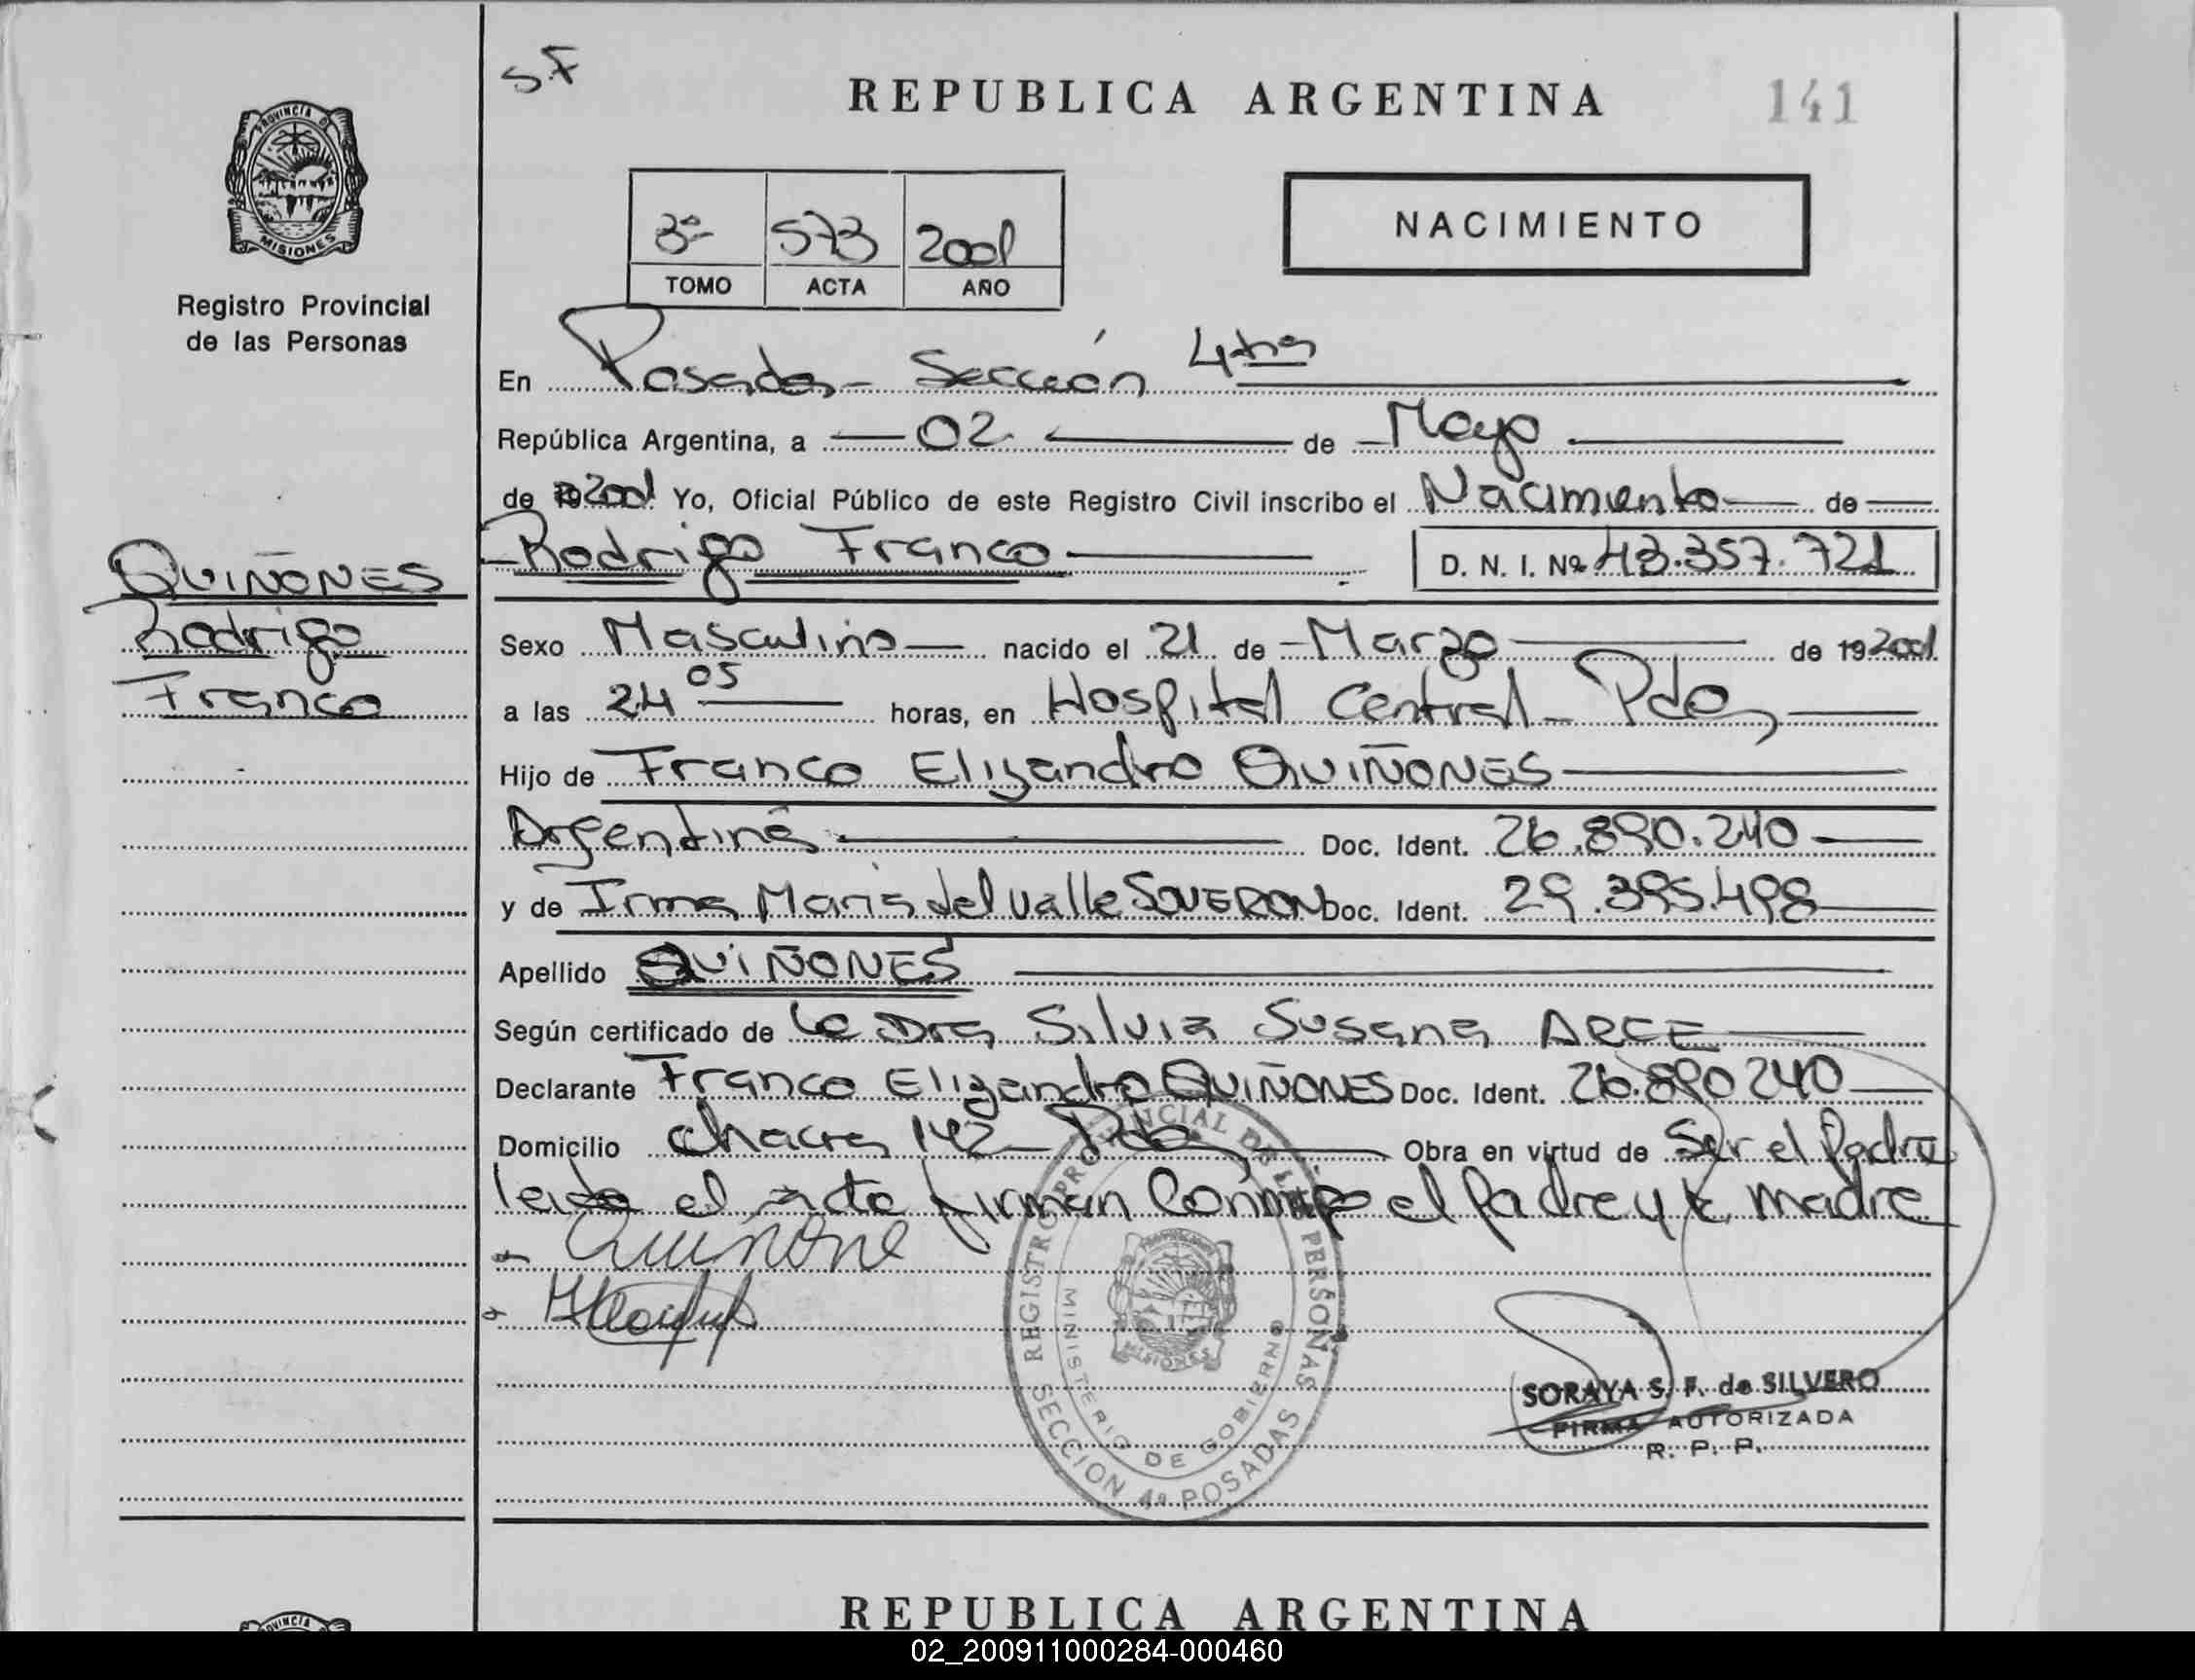 SF
REPUBLICA ARGENTINA
141
PROVINCIA DE
MISIONES
Registro Provincial
de las Personas
3º 573 2001
TOMO ACTA AÑO
NACIMIENTO
En Posadas - Sección 4ta
República Argentina, a 02 de Mayo
de 2001 Yo, Oficial Público de este Registro Civil inscribo el Nacimiento de
Rodrigo Franco D. N. I. Nº 43.357.721
QUIÑONES
Rodrigo
Franco
Sexo Masculino nacido el 21 de Marzo de 19 2001
a las 24 05 horas, en Hospital Central - Pdas
Hijo de Franco Elizandro QUIÑONES
Argentina Doc. Ident. 26.890.240
y de Irma Maria del Valle SOVERON Doc. Ident. 29.395.498
Apellido QUIÑONES
Según certificado de la Dra Silvia Susana ARCE
Declarante Franco Elizandro QUIÑONES Doc. Ident. 26.890 240
Domicilio chacra 142 - Pdas Obra en virtud de Ser el Padre
leida el acta firman Conmigo el Padre y la madre
Quiñone
REGISTRO PROVINCIAL DE LAS PERSONAS
MINISTERIO DE GOBIERNO
MISIONES
SECCION 4ª POSADAS
SORAYA S. F. de SILVERO
FIRMA AUTORIZADA
R. P. P.
REPUBLICA ARGENTINA
02_200911000284-000460